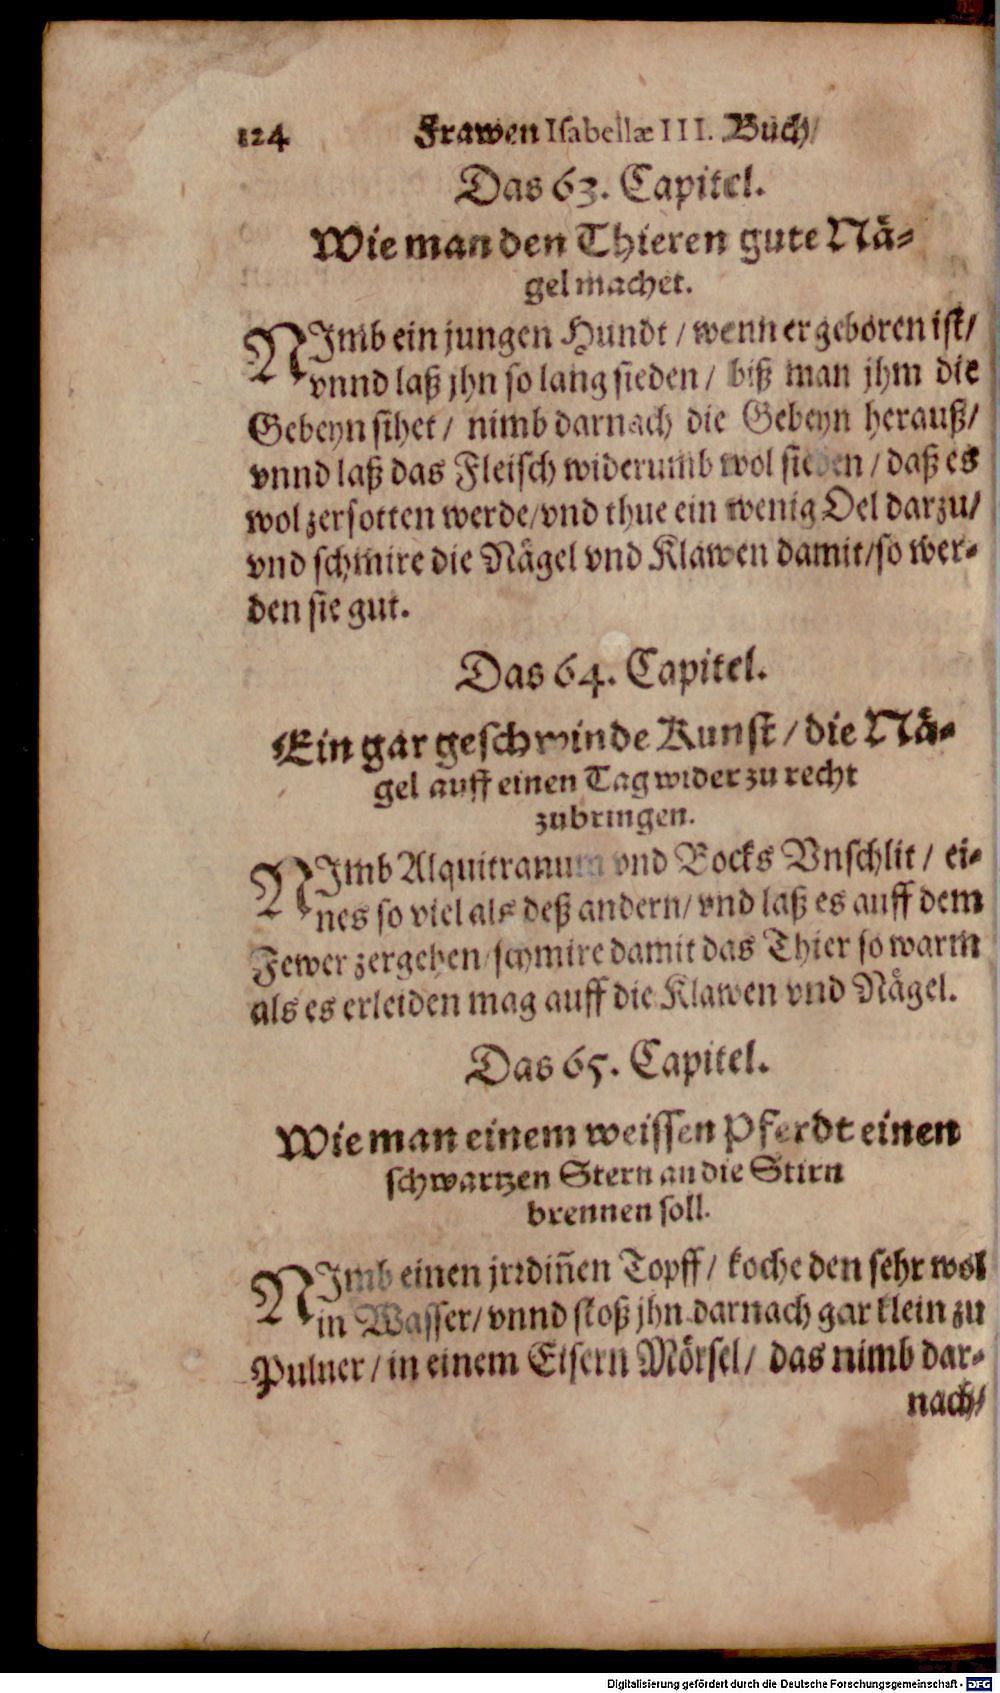 124 Frawen Isabellæ III. Buch/
Das 63. Capitel.
Wie man den Thieren gute Nä-
gel machet.
NImb ein jungen Hundt / wenn er geboren ist/
vnnd laß jhn so lang sieden / biß man jhm die
Gebeyn sihet / nimb darnach die Gebeyn herauß/
vnnd laß das Fleisch widerumb wol sieden / daß es
wol zersotten werde/vnd thue ein wenig Oel darzu/
vnd schmire die Nägel vnd Klawen damit/so wer-
den sie gut.
Das 64. Capitel.
Ein gar geschwinde Kunst / die Nä-
gel auff einen Tag wider zu recht
zubringen.
NImb Alquitranum vnd Bocks Vnschlit / ei-
nes so viel als deß andern/ vnd laß es auff dem
Fewer zergehen/schmire damit das Thier so warm
als es erleiden mag auff die Klawen vnd Nägel.
Das 65. Capitel.
Wie man einem weissen Pferdt einen
schwartzen Stern an die Stirn
brennen soll.
NImb einen jrdiñen Topff / koche den sehr wol
in Wasser/ vnnd stoß jhn darnach gar klein zu
Puluer / in einem Eisern Mörsel / das nimb dar-
nach/
Digitalisierung gefördert durch die Deutsche Forschungsgemeinschaft - DFG